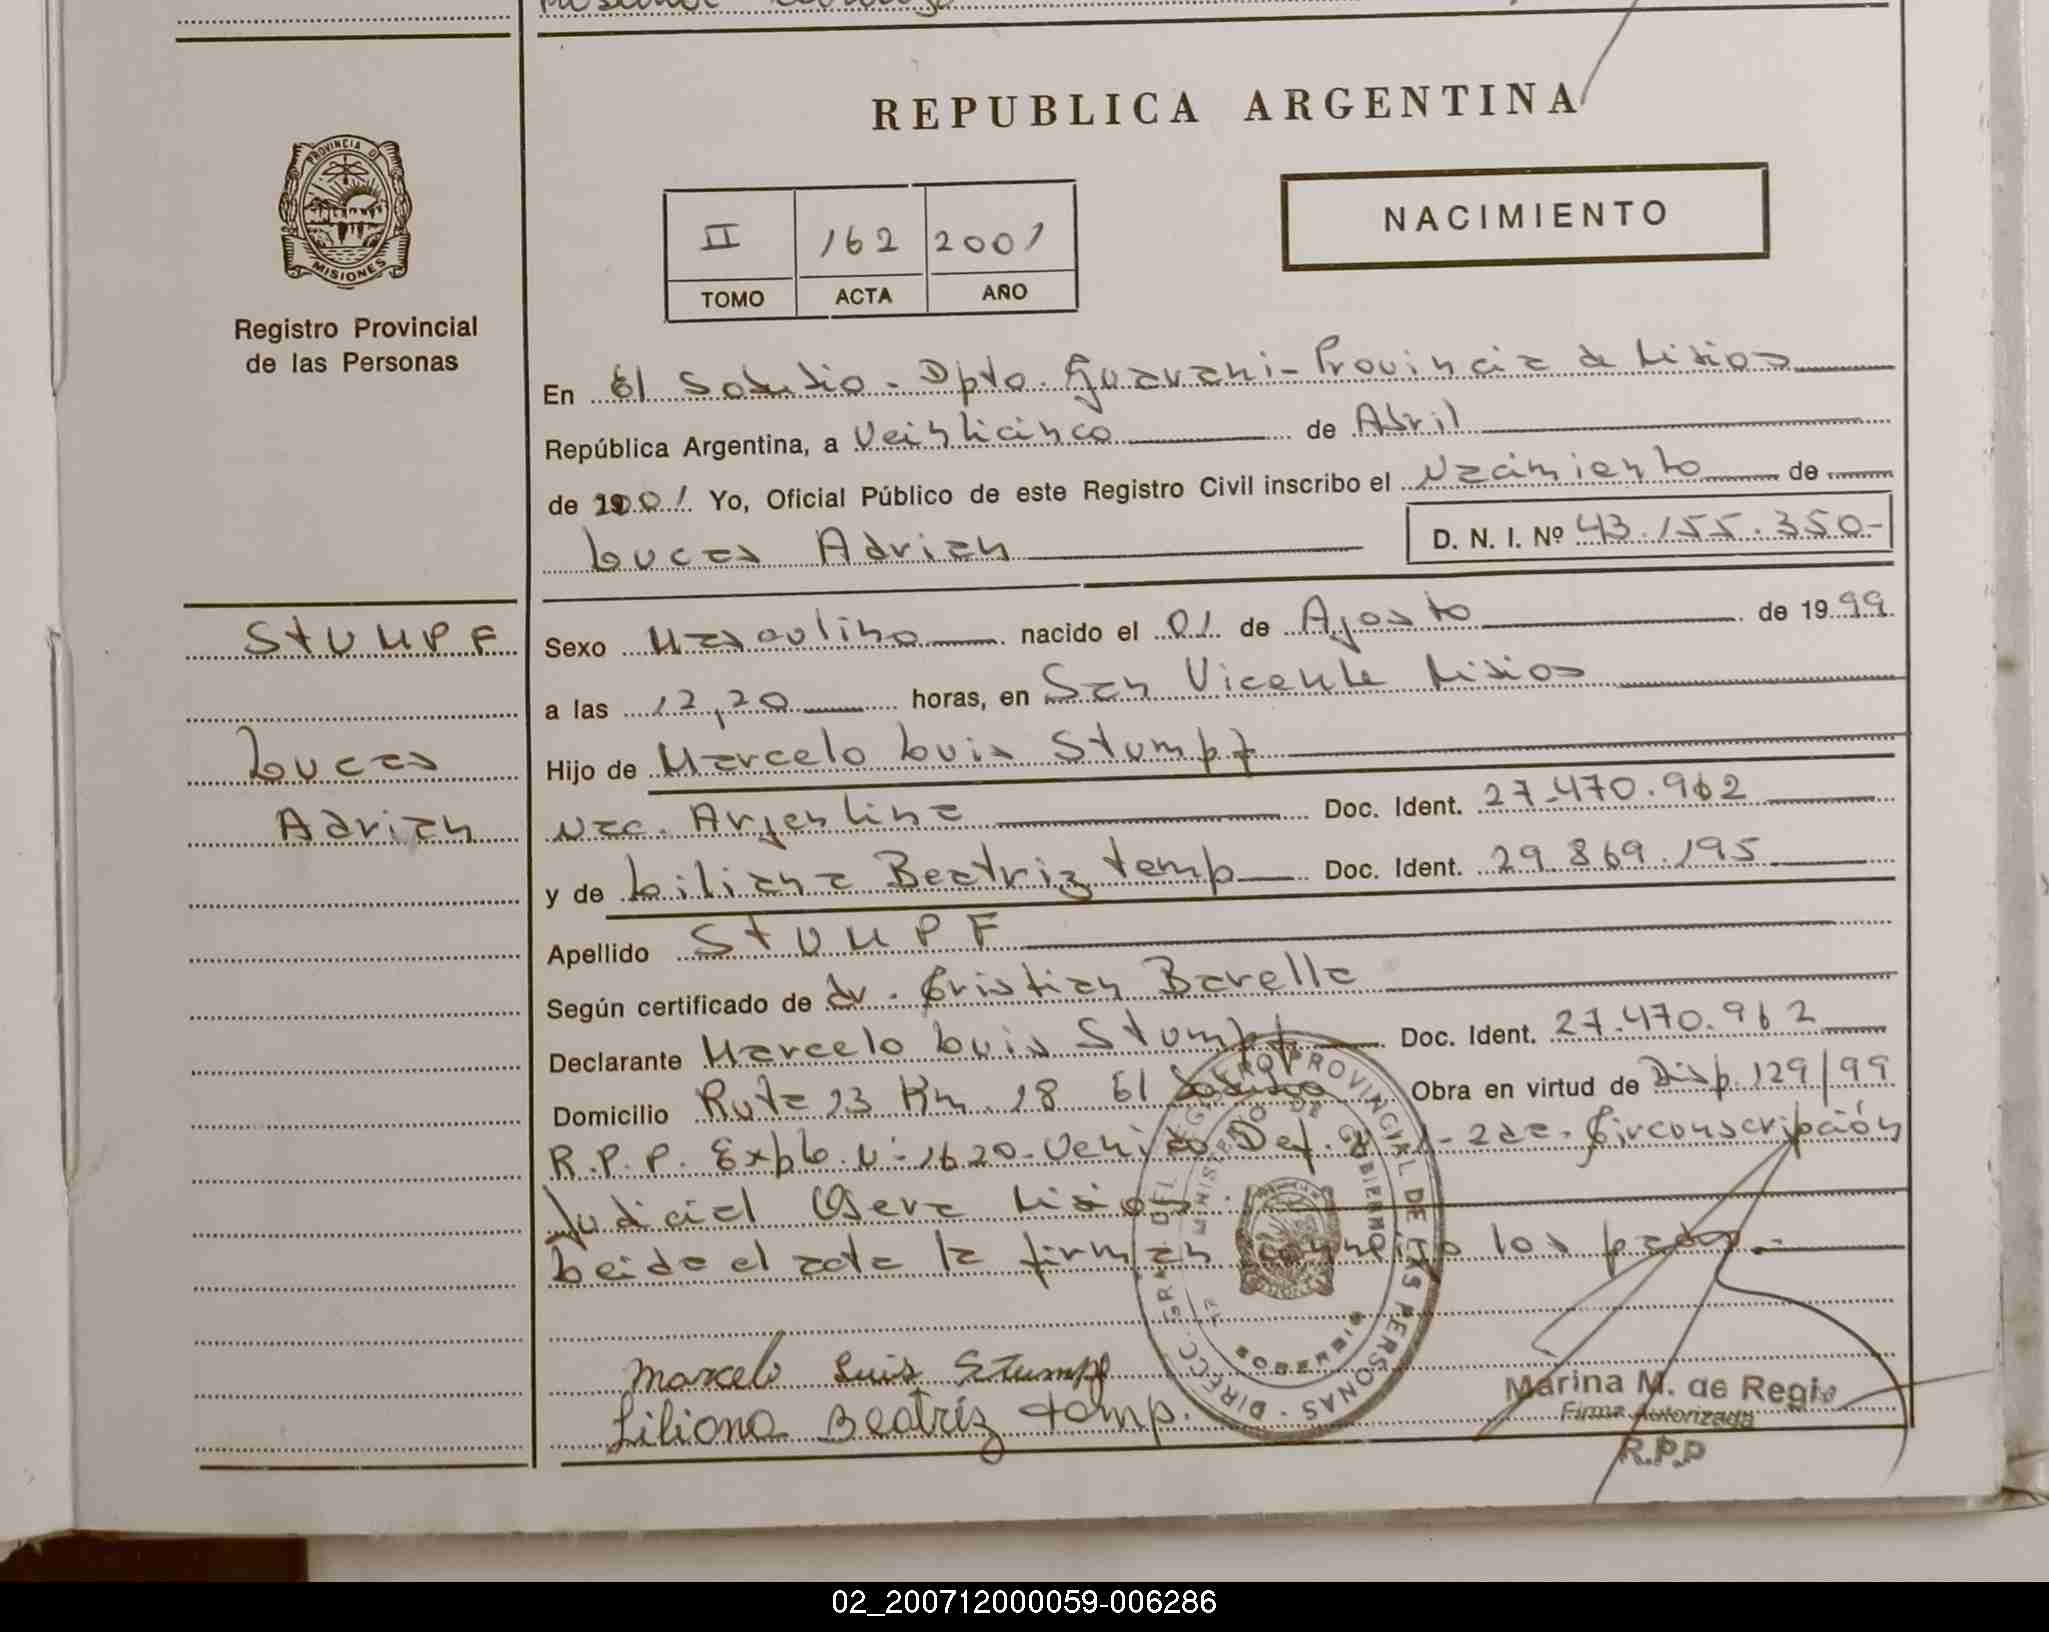 REPUBLICA ARGENTINA
PROVINCIA D
MISIONES
Registro Provincial
de las Personas
II 162 2001
TOMO ACTA AÑO
NACIMIENTO
En El Soberbio - Dpto. Guarani - Provincia de Misiones
República Argentina, a Veinticinco de Abril
de 2001 Yo, Oficial Público de este Registro Civil inscribo el Nacimiento de
Lucas Adrian D. N. I. Nº 43.155.350-
STUMPF
Lucas
Adrian
Sexo Masculino nacido el 01 de Agosto de 1999
a las 12,20 horas, en San Vicente Misiones
Hijo de Marcelo Luis Stumpf
Nac. Argentina Doc. Ident. 27.470.962
y de Liliana Beatriz Temp Doc. Ident. 29.869.195
Apellido STUMPF
Según certificado de dr. Cristian Barella
Declarante Marcelo Luis Stumpf Doc. Ident. 27.470.962
Domicilio Ruta 13 Km. 18 El Soberbio Obra en virtud de Disp. 129/99
R.P.P. Expte. N- 1620- Venido Def. 2da. Circonscripción
Judicial Obera Misiones
Leida el acta la firman conmigo los padres.-
DIRECC. GRAL. DEL REGISTRO PROVINCIAL DE LAS PERSONAS
MINISTERIO DE GOBIERNO
Marcelo Luis Stumpf
Liliana Beatriz temp.
Marina M. de Regio
Firma Autorizada
R.P.P
02_200712000059-006286